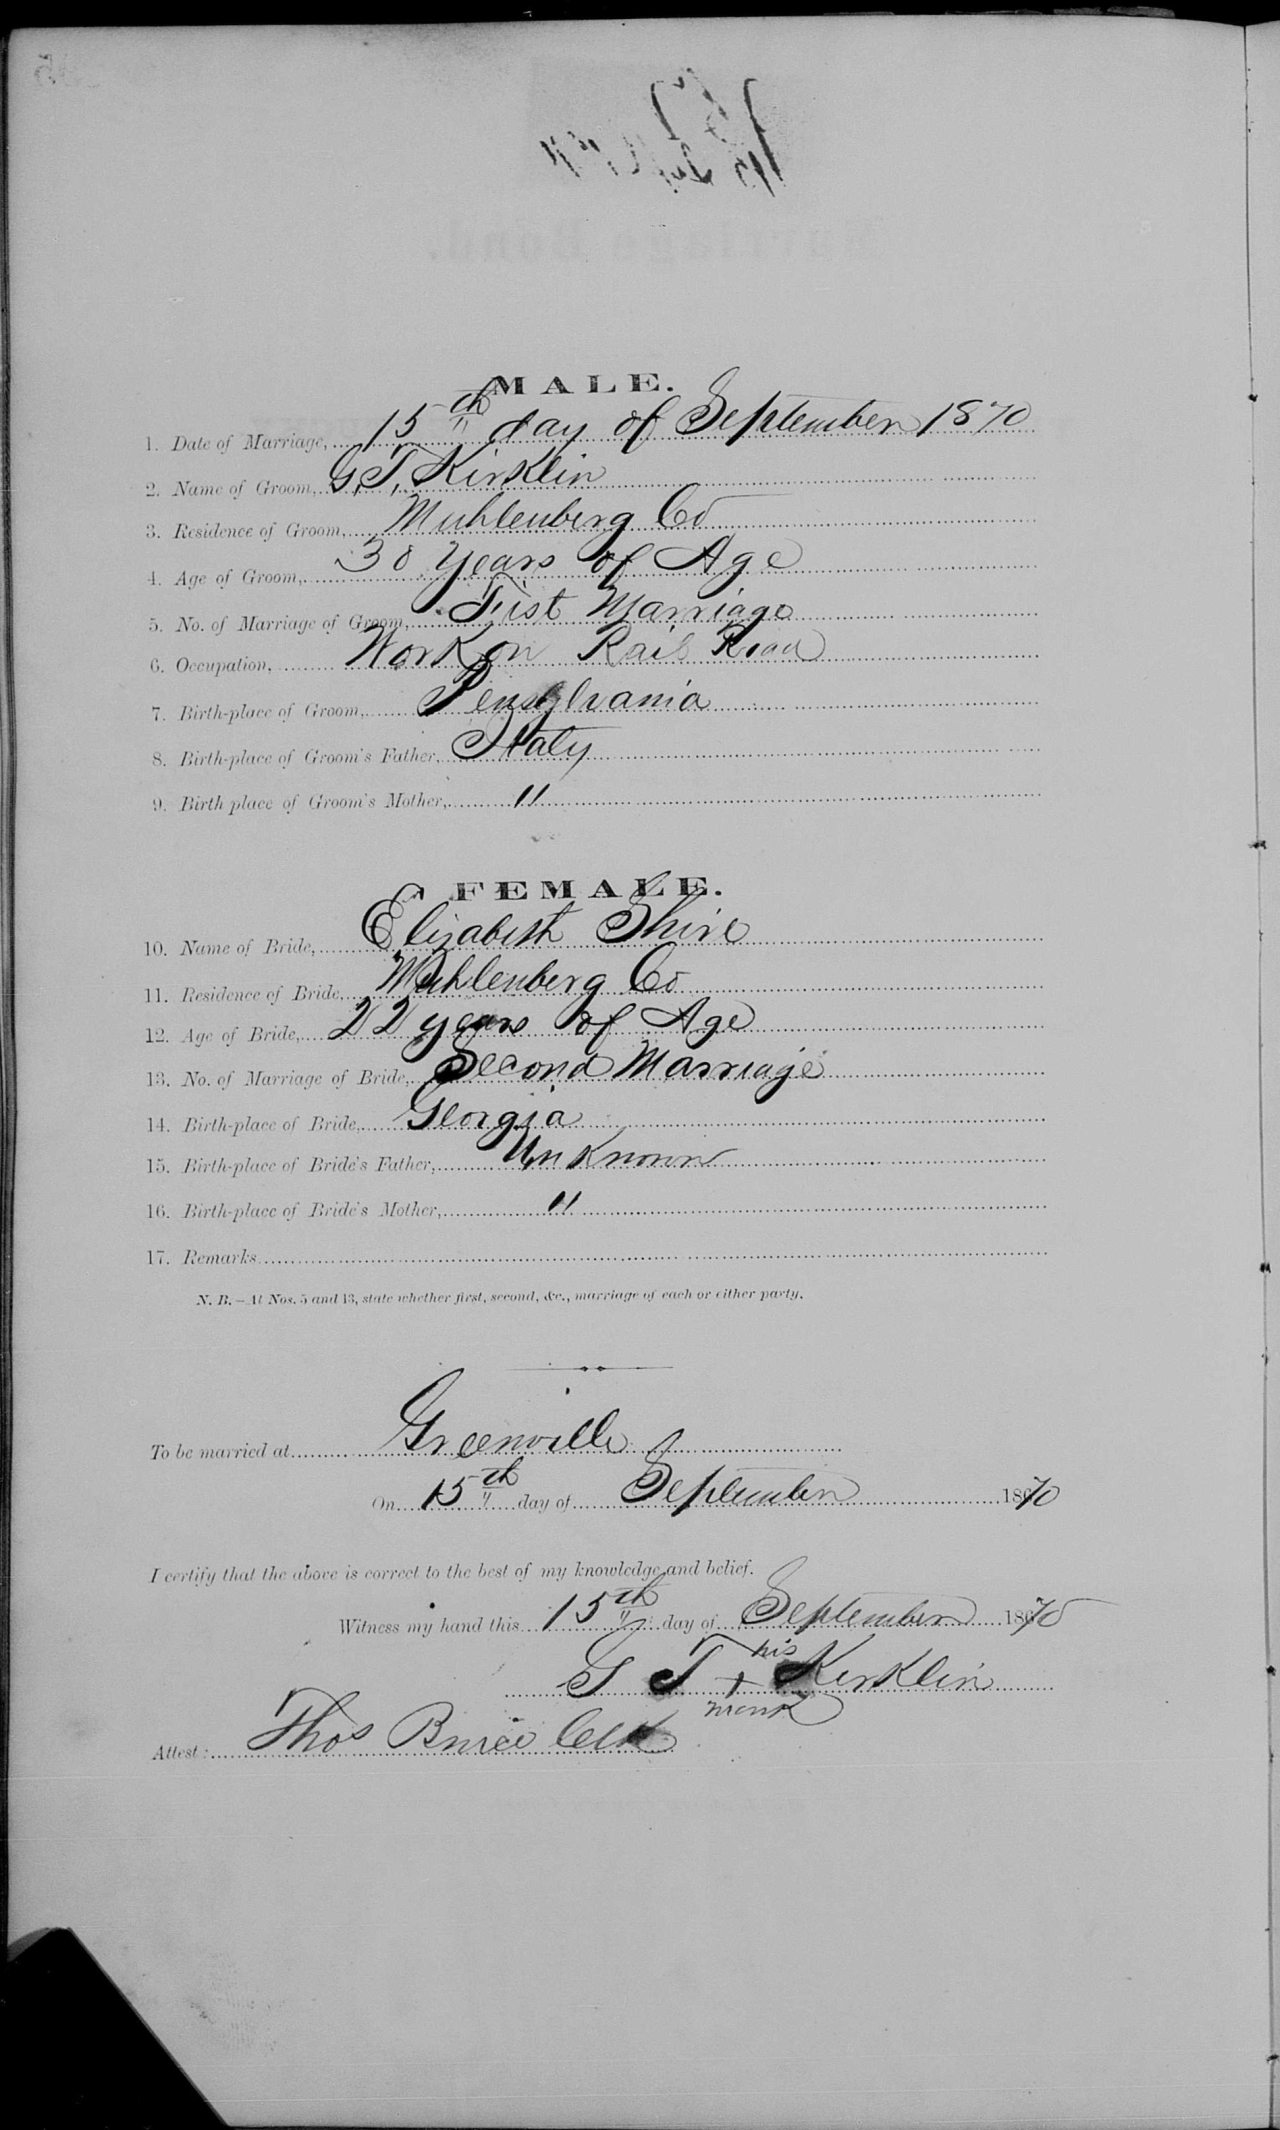 MALE.
1. Date of Marriage, 15th day of September 1870
2. Name of Groom, G. T. Kirklin
3. Residence of Groom, Muhlenberg Co
4. Age of Groom, 30 Years of Age
5. No. of Marriage of Groom, Fist Marriage
6. Occupation, Work on Rail Road
7. Birth-place of Groom, Pensylvania
8. Birth-place of Groom's Father, Italy
9. Birth place of Groom's Mother, "
FEMALE.
10. Name of Bride, Elizabeth Shire
11. Residence of Bride, Muhlenberg Co
12. Age of Bride, 22 years of Age
13. No. of Marriage of Bride, Second Marriage
14. Birth-place of Bride, Georgia
15. Birth-place of Bride's Father, Unknown
16. Birth-place of Bride's Mother, "
17. Remarks
N. B.—At Nos. 5 and 13, state whether first, second, &c., marriage of each or either party.
To be married at Greenville
On 15th day of September 1870
I certify that the above is correct to the best of my knowledge and belief.
Witness my hand this 15th day of September 1870
G T his x mark Kirklin
Attest: Thos Bruce Clk